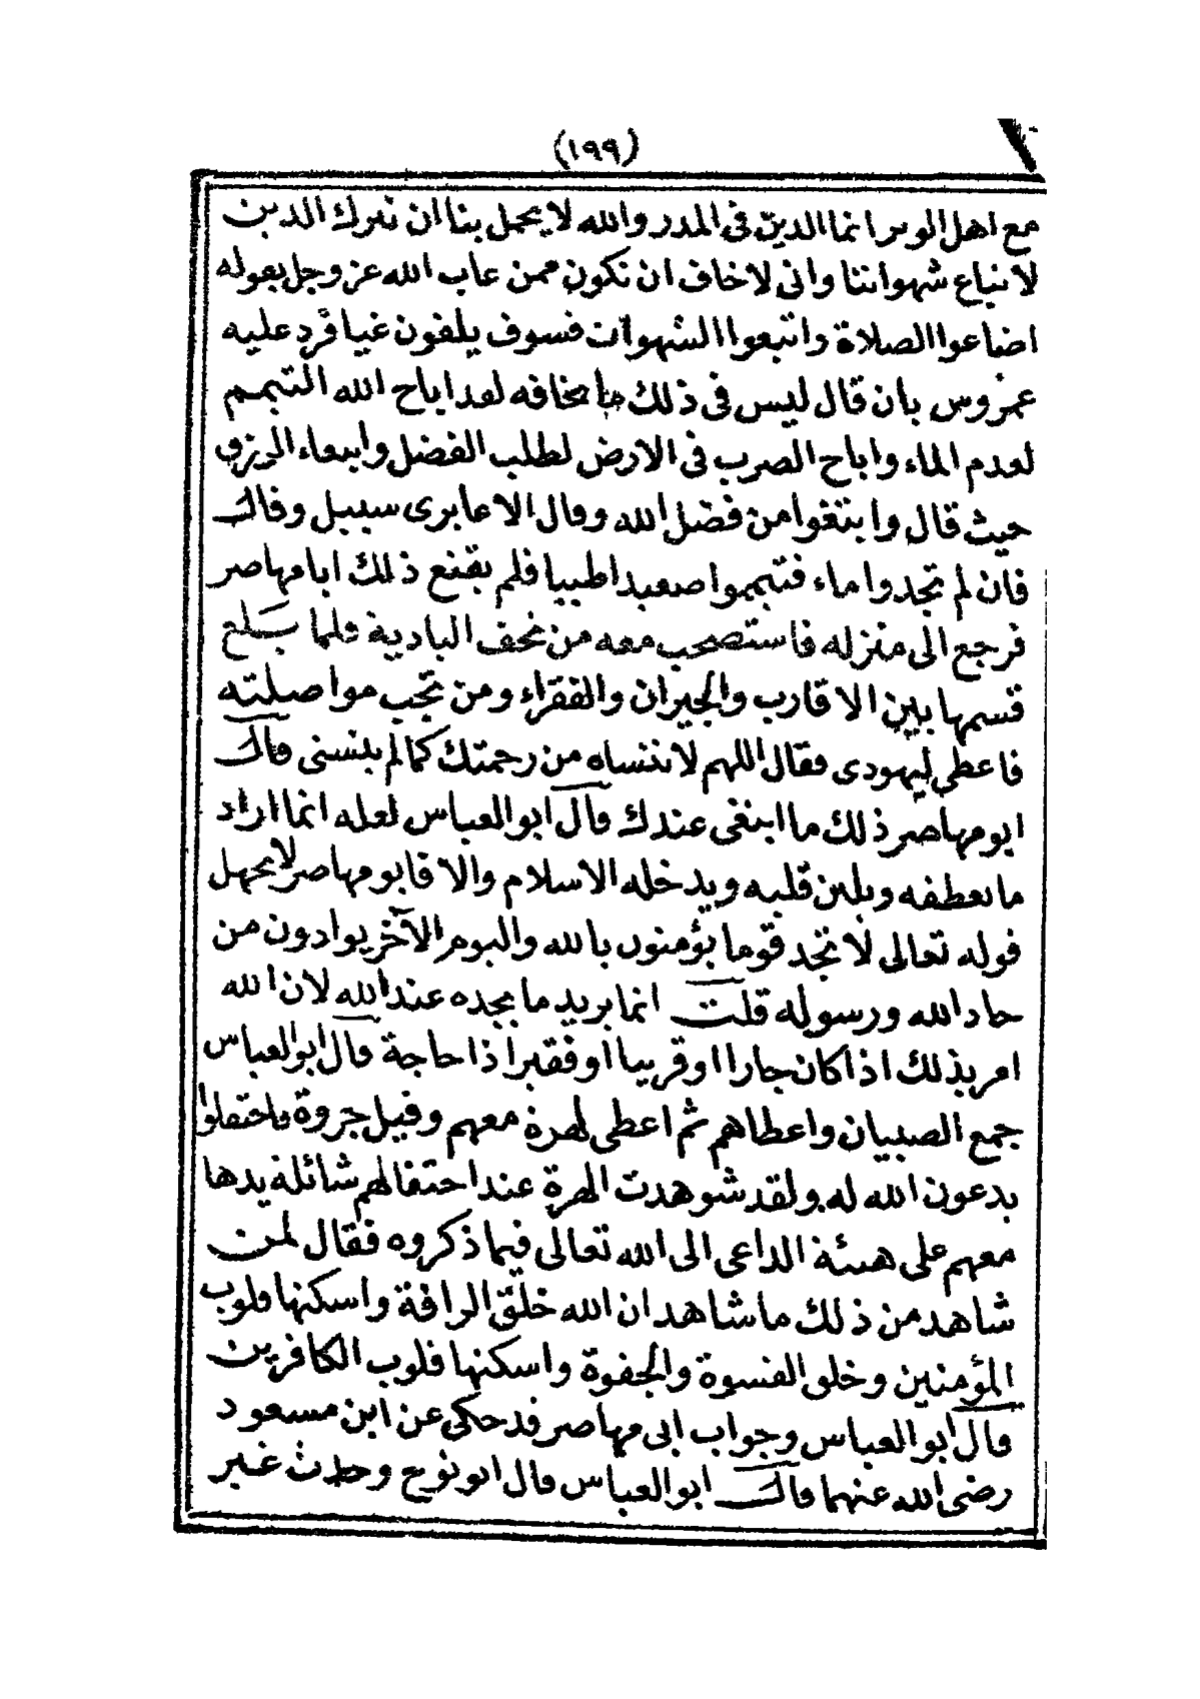 (١٩٩)
مع اهل الوبر انما الدين في المدر والله لا يجمل بنا ان نترك الدين
لاتباع شهواتنا واني لاخاف ان نكون ممن عاب الله عز وجل بقوله
اضاعوا الصلاة واتبعوا الشهوات فسوف يلقون غيا فرد عليه
عمروس بان قال ليس في ذلك ما نخافه لقد اباح الله التيمم
لعدم الماء واباح الضرب في الارض لطلب الفضل وابتغاء الرزق
حيث قال وابتغوا من فضل الله وقال الا عابري سبيل وقال
فان لم تجدوا ماء فتيمموا صعيدا طيبا فلم يقنع ذلك ابا مهاصر
فرجع الى منزله فاستصحب معه من تحف البادية فلما بلغ
قسمها بين الاقارب والجيران والفقراء ومن تجب مواصلته
فاعطى ليهودي فقال اللهم لا تنساه من رحمتك كما لم ينسني قال
ابو مهاصر ذلك ما ابتغي عندك قال ابو العباس لعله انما اراد
ما يعطفه ويلين قلبه ويدخله الاسلام والا فابو مهاصر لا يجهل
قوله تعالى لا تجد قوما يؤمنون بالله واليوم الآخر يوادون من
حاد الله ورسوله قلت انما يريد ما يجده عند الله لان الله
امر بذلك اذا كان جارا او قريبا او فقيرا ذا حاجة قال ابو العباس
جمع الصبيان واعطاهم ثم اعطى لهرة معهم وقيل جروة فاحتفلوا
يدعون الله له ولقد شوهدت الهرة عند احتفالهم شائلة يدها
معهم على هيئة الداعي الى الله تعالى فيما ذكروه فقال لمن
شاهد من ذلك ما شاهد ان الله خلق الرافة واسكنها قلوب
المؤمنين وخلق القسوة والجفوة واسكنها قلوب الكافرين
قال ابو العباس وجواب ابي مهاصر قد حكي عن ابن مسعود
رضي الله عنهما قال ابو العباس قال ابو نوح وحدث غير